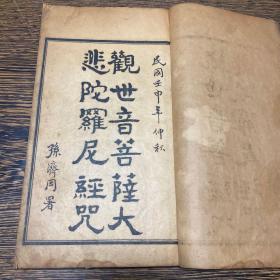 民國壬申年仲秋
觀世音菩薩大
悲陀羅尼經咒
孫奝同署